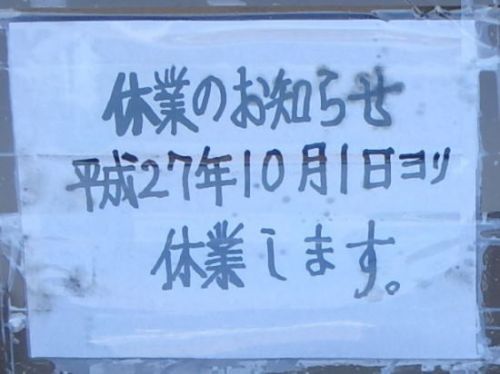 休業のお知らせ
平成27年10月1日ヨリ
休業します。